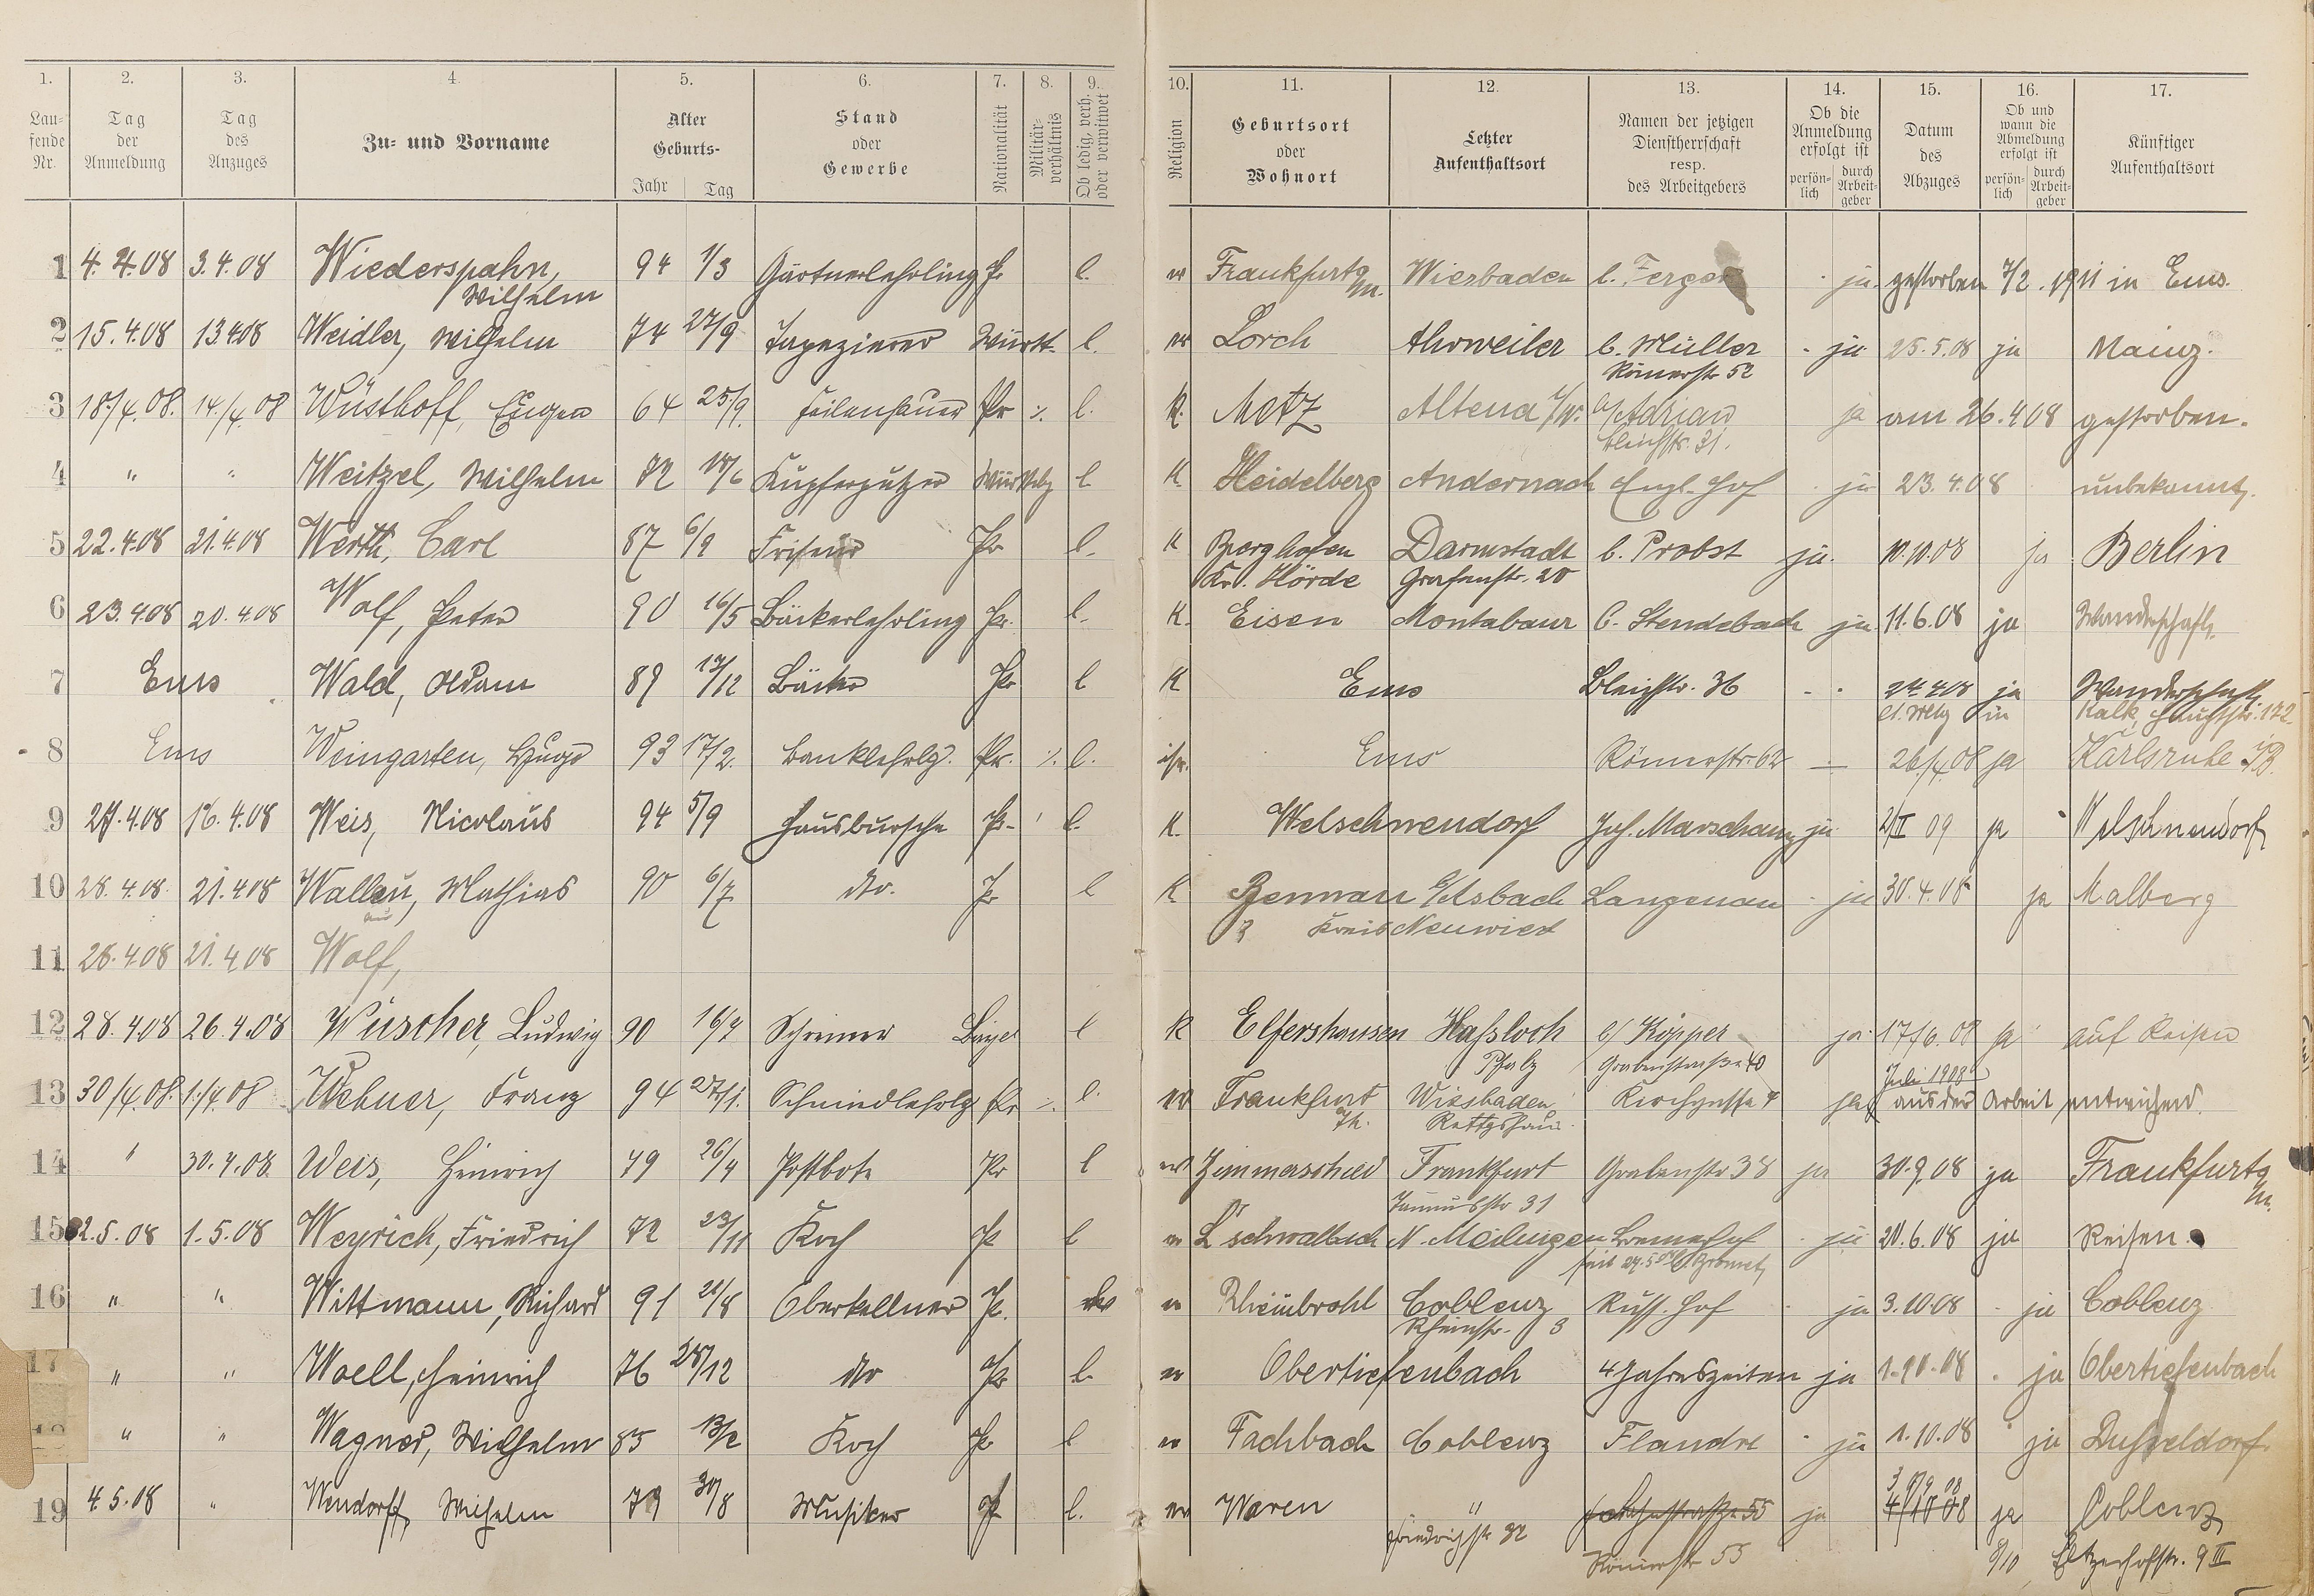 1. 2. 3. 4. 5. 6. 7. 8. 9. 10. 11. 12. 13. 14. 15. 16. 17.
Lau-
fende
Nr.
Tag
der
Anmeldung
Tag
des
Anzuges
Zu- und Vorname
Alter
Geburts-
Jahr Tag
Stand
oder
Gewerbe
Nationalität
Militär-
verhältnis
Ob ledig, verh.
oder verwitwet
Religion
Geburtsort
oder
Wohnort
Letzter
Aufenthaltsort
Namen der jetzigen
Dienstherrschaft
resp.
des Arbeitgebers
Ob die
Anmeldung
erfolgt ist
persön-
lich
durch
Arbeit-
geber
Datum
des
Abzuges
Ob und
wann die
Abmeldung
erfolgt ist
persön-
lich
durch
Arbeit-
geber
Künftiger
Aufenthaltsort
1 4.4.08 3.4.08 Wiederspahn, 94 1/3 Gärtnerlehrling Pr l. ev Frankfurt a/m. Wiesbaden b. Ferger ja gestorben 7/2. 1911 in Ems.
Wilhelm
2 15.4.08 13.4.08 Weidler, Wilhelm 74 27/9 Tapezierer Württ. l. ev Lorch Ahrweiler b. Müller ja 25.5.08 ja Mainz.
Römerstr 52
3 18./4.08. 14./4.08 Wüsthoff, Eugen 64 25./9. Feilenhauer Pr ./. l. K. Metz Altena i/W. b/Adrian ja am 26.4.08 gestorben.
Bleichstr. 31.
4 " " Weitzel, Wilhelm 72 18/6 Kupferputzer l K. Heidelberg Andernach Engl. Hof ja 23.4.08 unbekannt.
5 22.4.08 21.4.08 Werth, Carl 87 6/9 Friseur Pr l. K Berghofen Darmstadt b. Probst ja. 10.10.08 ja Berlin
Kr. Hörde Grafenstr. 20
6 23.4.08 20.4.08 Wolf, Peter 90 16/5 Bäckerlehrling Pr. l. K. Eisen Montabaur b. Stendebach ja 11.6.08 ja Wanderschaft.
7 Ems Wald, Adam 89 17/12 Bäcker Pr l K Ems Bleichstr. 36 - . 24.4.08 ja Wanderschaft
Kalk, Hauptstr. 172
- 8 Ems Weingarten, Hugo 93 17/2. Banklehrlg. Pr. ./. l. isr. Ems Römerstr 62 — 26/4.08 ja Karlsruhe i/B.
9 27.4.08 16.4.08 Weis, Nicolaus 94 5/9 Hausbursche Pr. l. K. Welschnendorf Joh. Marschang ja 2/I 09 ja Welschnendorf
10 28.4.08. 21.4.08 Wallau, Mathias 90 6/7 do. Pr l K b/Asbach Langenau ja 30.4.08 ja Malberg
Kreis Neuwied
11 28.4.08 21.4.08 Wolf,
12 28.4.08 26.4.08 Wüscher, Ludwig 90 16/7 Schreiner Bayer l K Elfershausen Hassloch b/ Köpper ja 17/6.08 ja auf Reisen
Pfalz Grabenstrasse 40
13 30/4.08. 1./4.08 Wehner, Franz 94 27/11. Schmiedlehrlg Pr ./. l. ev Frankfurt Wiesbaden Kirchgasse 4 ja Juli 1908 aus der Arbeit entwichen.
a/M. Rettgshaus
14 " 30.4.08. Weis, Heinrich 79 26/4 Postbote Pr l ev Zimmerschied Frankfurt Grabenstr 38 ja 30.9.08 ja Frankfurt a/m.
Taunusstr 31
15 2.5.08 1.5.08 Weyrich, Friedrich 72 23/11 Koch Pr l ev L schwalbach N. Meilingen Bremerhof ja 20.6.08 ja Reisen.
16 " " Wittmann, Richard 91 21/8 Oberkellner Pr. ev Rheinbrohl Coblenz Russ. Hof ja 3.10.08 ja Coblenz
Rheinstr. 3
17 " " Woell, Heinrich 76 28/12 do Pr l. ev Obertiefenbach 4 Jahreszeiten ja 1.10.08 ja Obertiefenbach
" " Wagner, Wilhelm 85 13/2 Koch Pr l ev Fachbach Coblenz Flandre ja 1.10.08 ja Düsseldorf
19 4.5.08 " Wendorff, Wilhelm 79 30/8 Musiker Pr l. ev Waren " ja 3/9 08 ja Coblenz
Friedrichstr 32 Römerstr 55 8/10 Eltzerhofstr. 9 III